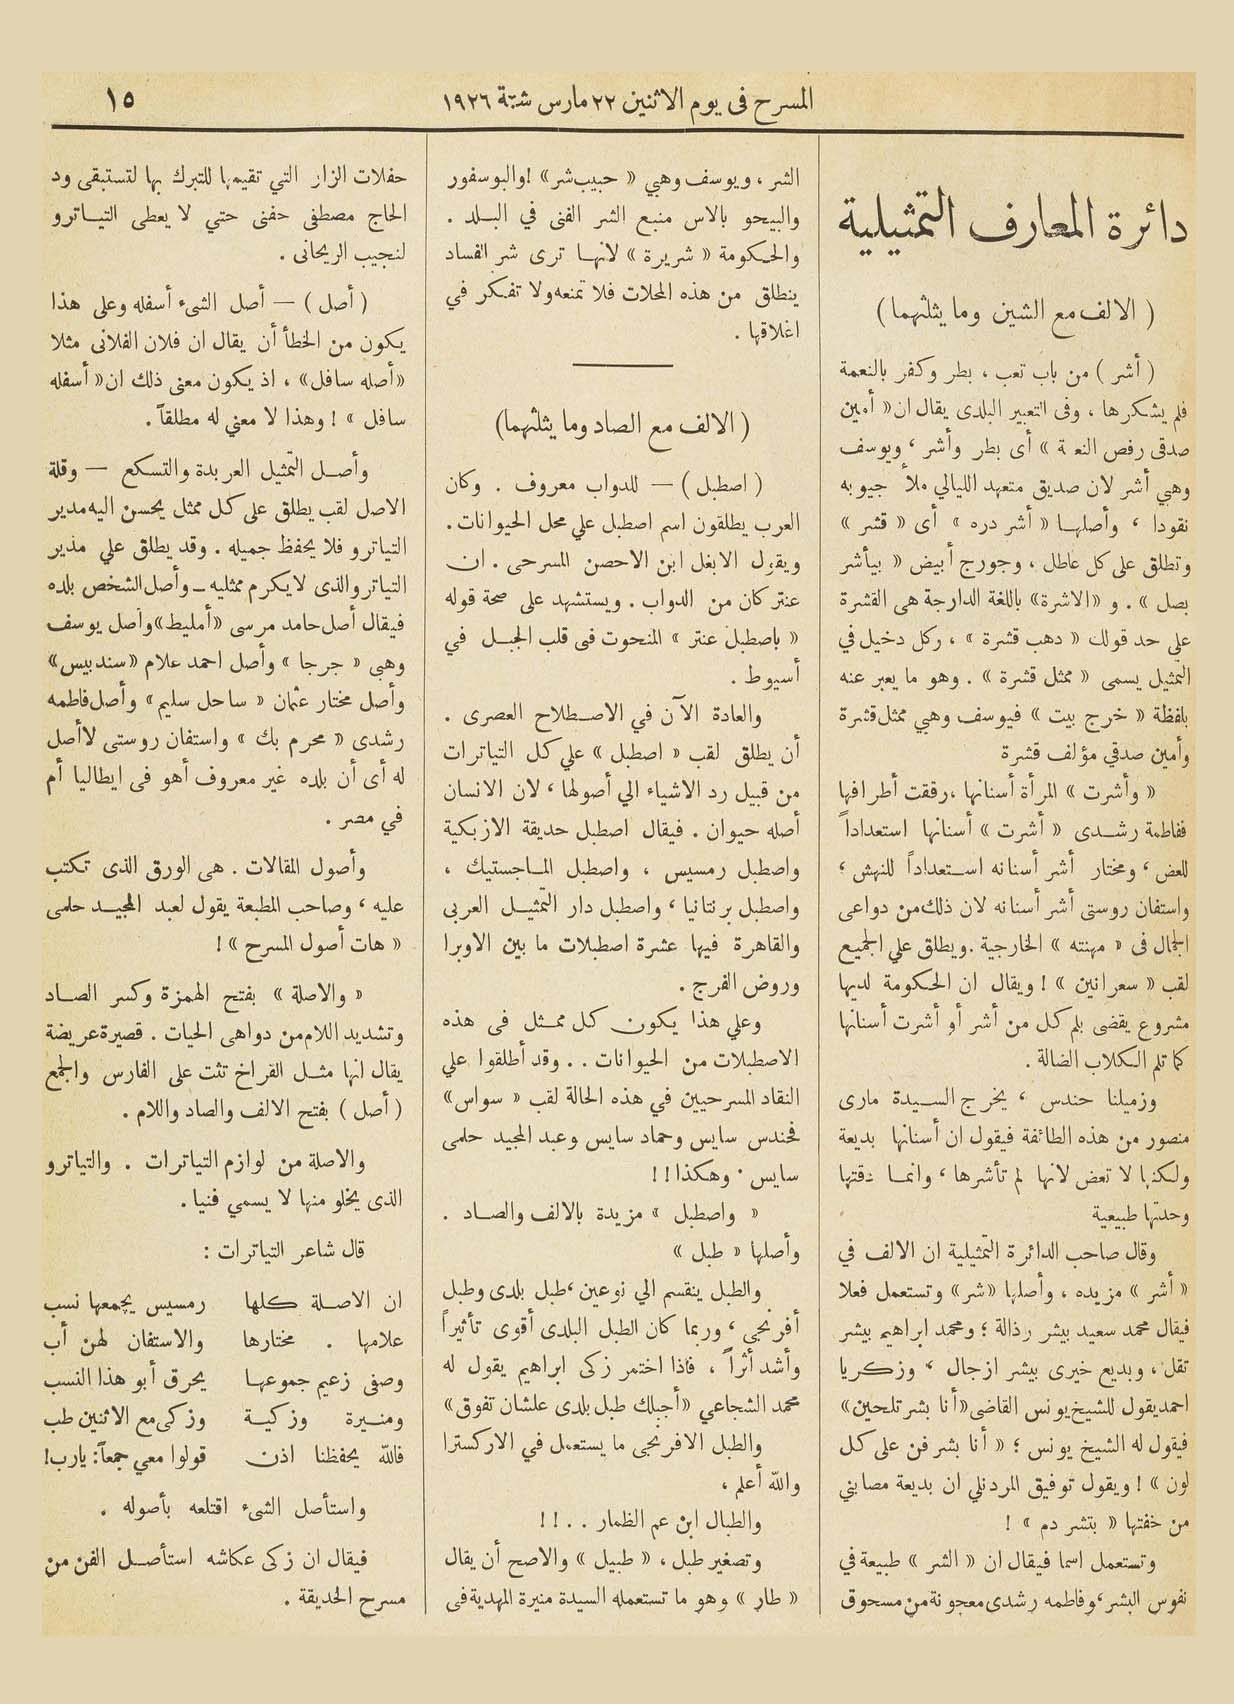 المسرح فى يوم الاثنين ٢٢ مارس سنة ١٩٢٦
١٥
دائرة المعارف التمثيلية
( الالف مع الشين وما يثلثهما )
( أشر ) من باب تعب ، بطر وكفر بالنعمة
فلم يشكرها ، وفى التعبير البلدى يقال ان « أمين
صدقى رفص النعمة » أى بطر وأشر ، ويوسف
وهبي أشر لان صديق متعهد الليالي ملأ جيوبه
نقودا ، وأصلها « أشر دره » أى « قشر »
وتطلق على كل عاطل ، وجورج أبيض « بيأشر
بصل » . و «الاشرة» باللغة الدارجة هى القشرة
علي حد قولك « دهب قشرة » ، وكل دخيل في
التمثيل يسمى « ممثل قشرة » . وهو ما يعبر عنه
بلفظة « خرج بيت » فيوسف وهبي ممثل قشرة
وأمين صدقي مؤلف قشرة
« وأشرت » المرأة أسنانها ، رققت أطرافها
ففاطمة رشدى « أشرت » أسنانها استعداداً
للعض ، ومختار أشر أسنانه استعداداً للنهش ،
واستفان روستى أشر أسنانه لان ذلك من دواعى
الجمال فى « مهنته » الخارجية . ويطلق علي الجميع
لقب « سعرانين » ! ويقال ان الحكومة لديها
مشروع يقضى بلم كل من أشر أو أشرت أسنانها
كما تلم الكلاب الضالة .
وزميلنا حندس ، يخرج السيدة مارى
منصور من هذه الطائفة فيقول ان أسنانها بديعة
ولكنها لا تعض لانها لم تأشرها ، وانما دقتها
وحدتها طبيعية
وقال صاحب الدائرة التمثيلية ان الالف في
« أشر » مزيده ، وأصلها «شر» وتستعمل فعلا
فيقال محمد سعيد بيشر رذالة ؛ ومحمد ابراهيم بيشر
تقل ، وبديع خيرى بيشر ازجال ، وزكريا
احمد يقول للشيخ يونس القاضى «أنا بشر تلحين»
فيقول له الشيخ يونس ؛ « أنا بشر فن على كل
لون » ! ويقول توفيق المردنلي ان بديعة مصابني
من خفتها « بتشر دم » !
وتستعمل اسما فيقال ان « الشر » طبيعة في
نفوس البشر ، وفاطمه رشدى معجونة من مسحوق
الشر ، ويوسف وهبي « حبيب شر» ! والبوسفور
والبيجو بالاس منبع الشر الفنى في البلد .
والحكومة « شريرة » لانها ترى شر الفساد
ينطلق من هذه المحلات فلا تمنعه ولا تفكر في
اغلاقها .
( الالف مع الصاد وما يثلثهما )
( اصطبل ) — للدواب معروف . وكان
العرب يطلقون اسم اصطبل علي محل الحيوانات .
ويقول الابغل ابن الاحصن المسرحى . ان
عنتر كان من الدواب . ويستشهد على صحة قوله
« باصطبل عنتر » المنحوت فى قلب الجبل في
أسيوط .
والعادة الآن في الاصطلاح العصرى .
أن يطلق لقب « اصطبل » علي كل التياترات
من قبيل رد الاشياء الي أصولها ، لان الانسان
أصله حيوان . فيقال اصطبل حديقة الازبكية
واصطبل رمسيس ، واصطبل الماجستيك ،
واصطبل برنتانيا ، واصطبل دار التمثيل العربى
والقاهرة فيها عشرة اصطبلات ما بين الاوبرا
وروض الفرج .
وعلي هذا يكون كل ممثل فى هذه
الاصطبلات من الحيوانات . . وقد أطلقوا علي
النقاد المسرحيين في هذه الحالة لقب « سواس»
فحندس سايس وحماد سايس وعبد المجيد حلمى
سايس . وهكذا ! !
« واصطبل » مزيدة بالالف والصاد .
وأصلها « طبل »
والطبل ينقسم الي نوعين ، طبل بلدى وطبل
أفرنجى ، وربما كان الطبل البلدى أقوى تأثيراً
وأشد أثراً ، فاذا اختمر زكى ابراهيم يقول له
محمد الشجاعي «أجبلك طبل بلدى علشان تفوق»
والطبل الافرنجى ما يستعمل في الاركسترا
والله أعلم ،
والطبال ابن عم الظمار . . ! !
وتصغير طبل ، « طبيل » والاصح أن يقال
« طار » وهو ما تستعمله السيدة منيرة المهدية فى
حفلات الزار التي تقيمها للتبرك بها لتستبقى ود
الحاج مصطفى حفنى حتي لا يعطى التياترو
لنجيب الريحانى .
( أصل ) — أصل الشىء أسفله وعلي هذا
يكون من الخطأ أن يقال ان فلان الفلانى مثلا
«أصله سافل» ، اذ يكون معنى ذلك ان « أسفله
سافل » ! وهذا لا معني له مطلقاً .
وأصل التمثيل العربدة والتسكع — وقلة
الاصل لقب يطلق على كل ممثل يحسن اليه مدير
التياترو فلا يحفظ جميله . وقد يطلق علي مدير
التياترو الذى لا يكرم ممثليه — وأصل الشخص بلده
فيقال أصل حامد مرسى «أمليط» وأصل يوسف
وهبى « جرجا » وأصل احمد علام «سندبيس»
وأصل مختار عثمان « ساحل سليم» وأصل فاطمه
رشدى « محرم بك » واستفان روستى لاأصل
له أى أن بلده غير معروف أهو فى ايطاليا أم
في مصر .
وأصول المقالات . هى الورق الذى تكتب
عليه ، وصاحب المطبعة يقول لعبد المجيد حلمى
« هات أصول المسرح » !
« والاصلة » بفتح الهمزة وكسر الصاد
وتشديد اللام من دواهى الحيات . قصيرة عريضة
يقال انها مثل الفراخ تثت على الفارس والجمع
( أصل ) بفتح الالف والصاد واللام .
والاصلة من لوازم التياترات . والتياترو
الذى يخلو منها لا يسمي فنيا .
قال شاعر التياترات :
ان الاصلة كلها رمسيس يجمعها نسب
علامها . مختارها والاستفان لهن أب
وصفى زعيم جموعها يحرق أبو هذا النسب
ومنيرة وزكية وزكى مع الاثنين طب
فالله يحفظنا اذن قولوا معي جمعاً : يارب !
واستأصل الشىء اقتلعه بأصوله .
فيقال ان زكى عكاشه استأصل الفن من
مسرح الحديقة .